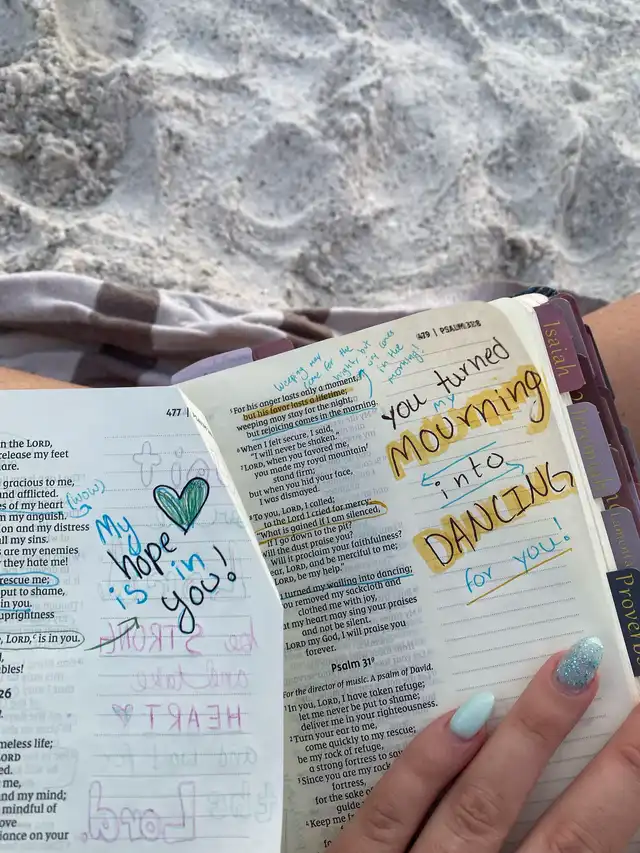 477
in the LORD,
release my feet
are.
gracious to me,
and afflicted.
es of my heart
(wow)
m my anguish.
on and my distress
all my sins.
s are my enemies
they hate me!
rescue me;
put to shame,
in you.
uprightness
LORD,ᶜ is in you.
bles!
26
meless life;
LORD
ed.
me,
nd my mind;
mindful of
ove
iance on your
My
hope
is in
you!
479 | PSALM 31:8
weeping may
come for the
night, but
joy comes
in the
morning!
⁵ For his anger lasts only a moment,
but his favor lasts a lifetime;
weeping may stay for the night,
but rejoicing comes in the morning.
⁶ When I felt secure, I said,
"I will never be shaken."
⁷ LORD, when you favored me,
you made my royal mountain
stand firm;
but when you hid your face,
I was dismayed.
⁸ To you, LORD, I called;
to the Lord I cried for mercy:
⁹ "What is gained if I am silenced,
if I go down to the pit?
Will the dust praise you?
Will it proclaim your faithfulness?
ear, LORD, and be merciful to me;
LORD, be my help."
turned my wailing into dancing;
you removed my sackcloth and
clothed me with joy,
at my heart may sing your praises
and not be silent.
LORD my God, I will praise you
forever.
Psalm 31
For the director of music. A psalm of David.
¹ In you, LORD, I have taken refuge;
let me never be put to shame;
deliver me in your righteousness.
² Turn your ear to me,
come quickly to my rescue;
be my rock of refuge,
a strong fortress to sav
³ Since you are my rock
fortress,
for the sake o
guide
⁴ Keep me f
you turned
my
MOURNING
into
DANCING
for you!
Isaiah
Proverbs
be STRONG
and take
HEART
Lord